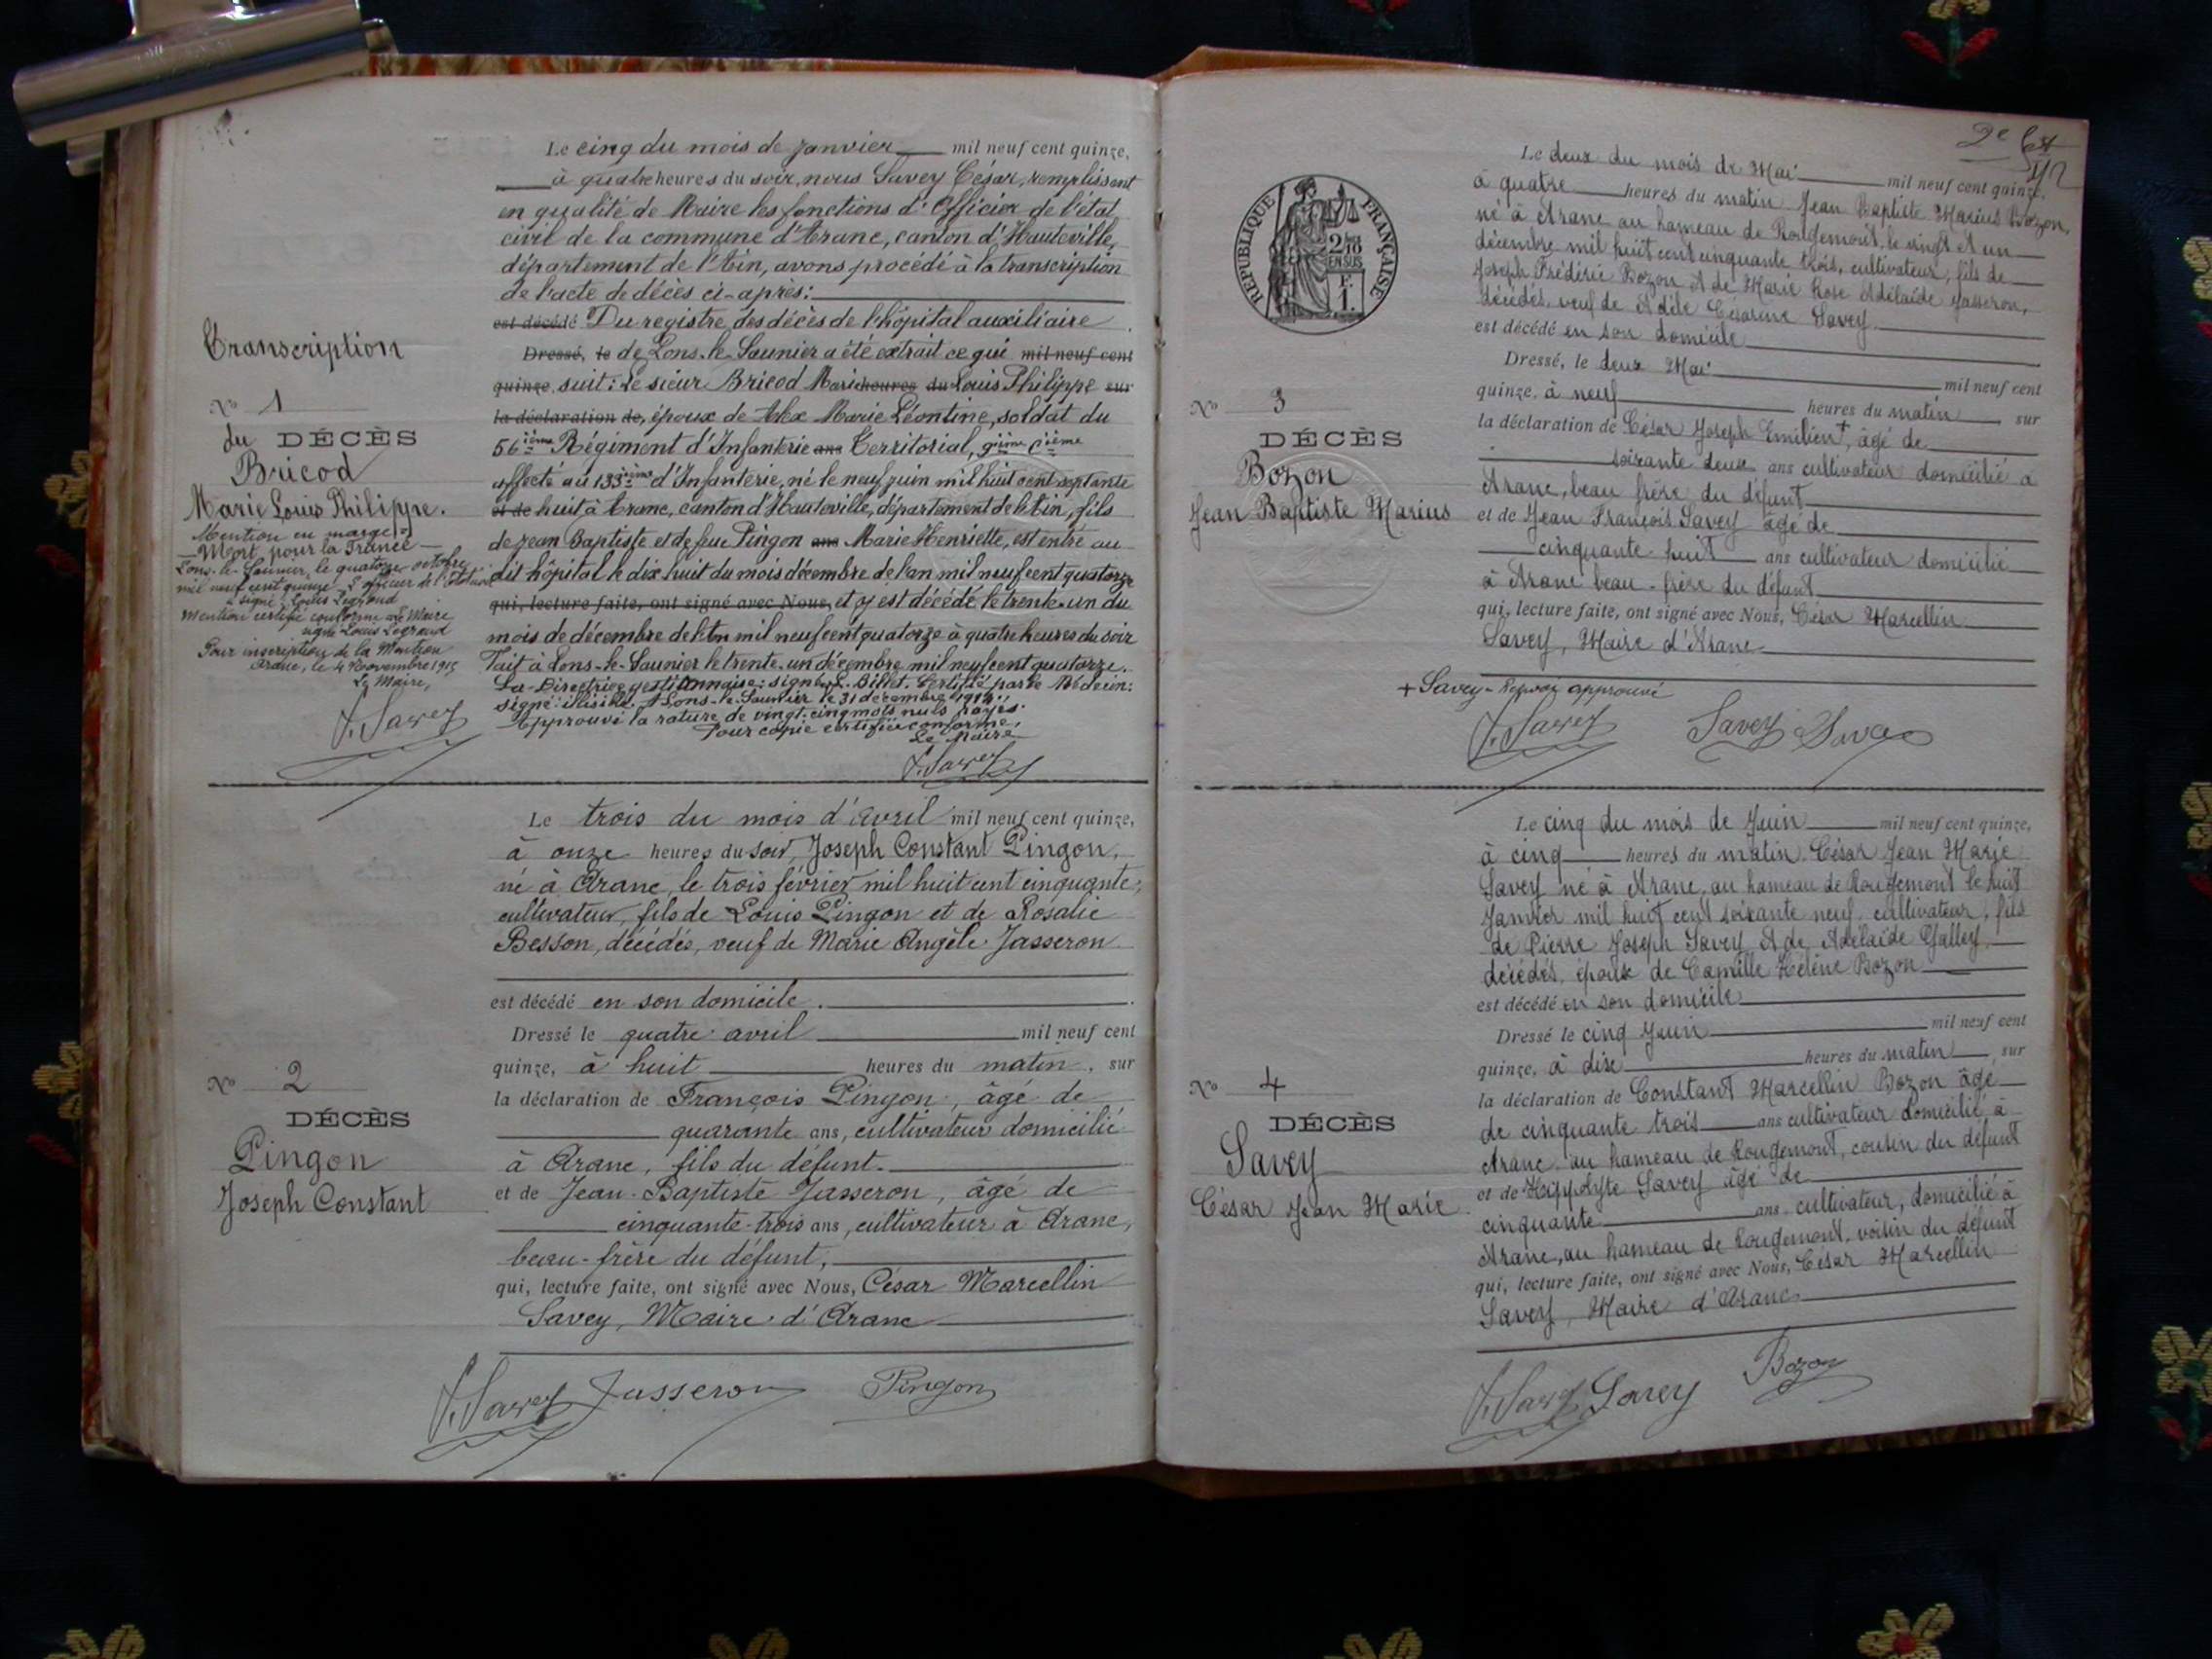 Transcription
N° 1
du DÉCÈS
Bricod
Marie Louis Philippe.
Mention en marge:
Mort pour la France
Lons-le-Saunier, le quatorze octobre
mil neuf cent quinze L'officier de l'état civil
signé: Louis Legrand
Mention certifiée conforme Le Maire
signé Louis Legrand
Pour inscription de la Mention
Aranc, le 4 Novembre 1915
Le Maire,
Savey
Le cinq du mois de janvier mil neuf cent quinze,
à quatre heures du soir, nous Savey César, remplissant
en qualité de Maire les fonctions d'Officier de l'état
civil de la commune d'Aranc, canton d'Hauteville,
département de l'Ain, avons procédé à la transcription
de l'acte de décès ci-après:
est décédé Du registre des décès de l'hôpital auxiliaire
Dressé, le de Lons-le-Saunier a été extrait ce qui mil neuf cent
quinze, suit: Le sieur Bricod Marie heures du Louis Philippe sur
la déclaration de, époux de Marie Léontine, soldat du
56ième Régiment d'Infanterie ans Territorial, 9ième Cième
affecté au 133ième d'Infanterie, né le neuf juin mil huit cent septante
et de huit à Aranc, canton d'Hauteville, département de l'Ain, fils
de Jean Baptiste et de feue Pingon ans Marie Henriette, est entré au
dit hôpital le dix huit du mois décembre de l'an mil neuf cent quatorze
qui, lecture faite, ont signé avec Nous, et y est décédé le trente-un du
mois de décembre de l'an mil neuf cent quatorze à quatre heures du soir
Fait à Lons-le-Saunier le trente-un décembre mil neuf cent quatorze.
La Directrice gestionnaire: signé: L. Billet. Certifié par le Médecin:
signé: illisible. A Lons-le-Saunier le 31 décembre 1914.
Approuvé la rature de vingt-cinq mots nuls rayés.
Pour copie certifiée conforme,
Le Maire
Savey
N° 2
DÉCÈS
Pingon
Joseph Constant
Le trois du mois d'avril mil neuf cent quinze,
à onze heures du soir, Joseph Constant Pingon,
né à Aranc, le trois février mil huit cent cinquante,
cultivateur, fils de Louis Pingon et de Rosalie
Besson, décédés, veuf de Marie Angèle Jasseron
est décédé en son domicile.
Dressé le quatre avril mil neuf cent
quinze, à huit heures du matin, sur
la déclaration de François Pingon, âgé de
quarante ans, cultivateur domicilié
à Aranc, fils du défunt.
et de Jean-Baptiste Jasseron, âgé de
cinquante-trois ans, cultivateur à Aranc,
beau-frère du défunt,
qui, lecture faite, ont signé avec Nous, César Marcellin
Savey, Maire d'Aranc
Savey Jasseron Pingon
2e
REPUBLIQUE FRANÇAISE
2/10
EN SUS
F.
1.
N° 3
DÉCÈS
Bozon
Jean Baptiste Marius
Le deux du mois de Mai mil neuf cent quinze,
à quatre heures du matin Jean Baptiste Marius Bozon,
né à Aranc au hameau de Rougemont, le vingt et un
décembre mil huit cent cinquante trois, cultivateur, fils de
Joseph Frédéric Bozon et de Marie Rose Adélaïde Jasseron,
décédés, veuf de Adèle Césarine Savey.
est décédé en son domicile
Dressé, le deux Mai mil neuf cent
quinze, à neuf heures du matin sur
la déclaration de César Joseph Emilien +, âgé de
soixante deux ans cultivateur domicilié à
Aranc, beau frère du défunt
et de Jean François Savey âgé de
cinquante huit ans cultivateur domicilié
à Aranc beau-frère du défunt
qui, lecture faite, ont signé avec Nous, César Marcellin
Savey, Maire d'Aranc
+ Savey - Renvoi approuvé
Savey Savey Savey
N° 4
DÉCÈS
Savey
César Jean Marie
Le cinq du mois de Juin mil neuf cent quinze,
à cinq heures du matin César Jean Marie
Savey né à Aranc, au hameau de Rougemont le huit
Janvier mil huit cent soixante neuf, cultivateur, fils
de Pierre Joseph Savey et de Adélaïde
décédés, époux de Camille Hélène Bozon
est décédé en son domicile
Dressé le cinq Juin mil neuf cent
quinze, à dix heures du matin, sur
la déclaration de Constant Marcellin Bozon âgé
de cinquante trois ans cultivateur domicilié à
Aranc, au hameau de Rougemont, cousin du défunt
et de Hippolyte Savey âgé de
cinquante ans cultivateur, domicilié à
Aranc, au hameau de Rougemont, voisin du défunt
qui, lecture faite, ont signé avec Nous, César Marcellin
Savey, Maire d'Aranc.
Savey Savey Bozon